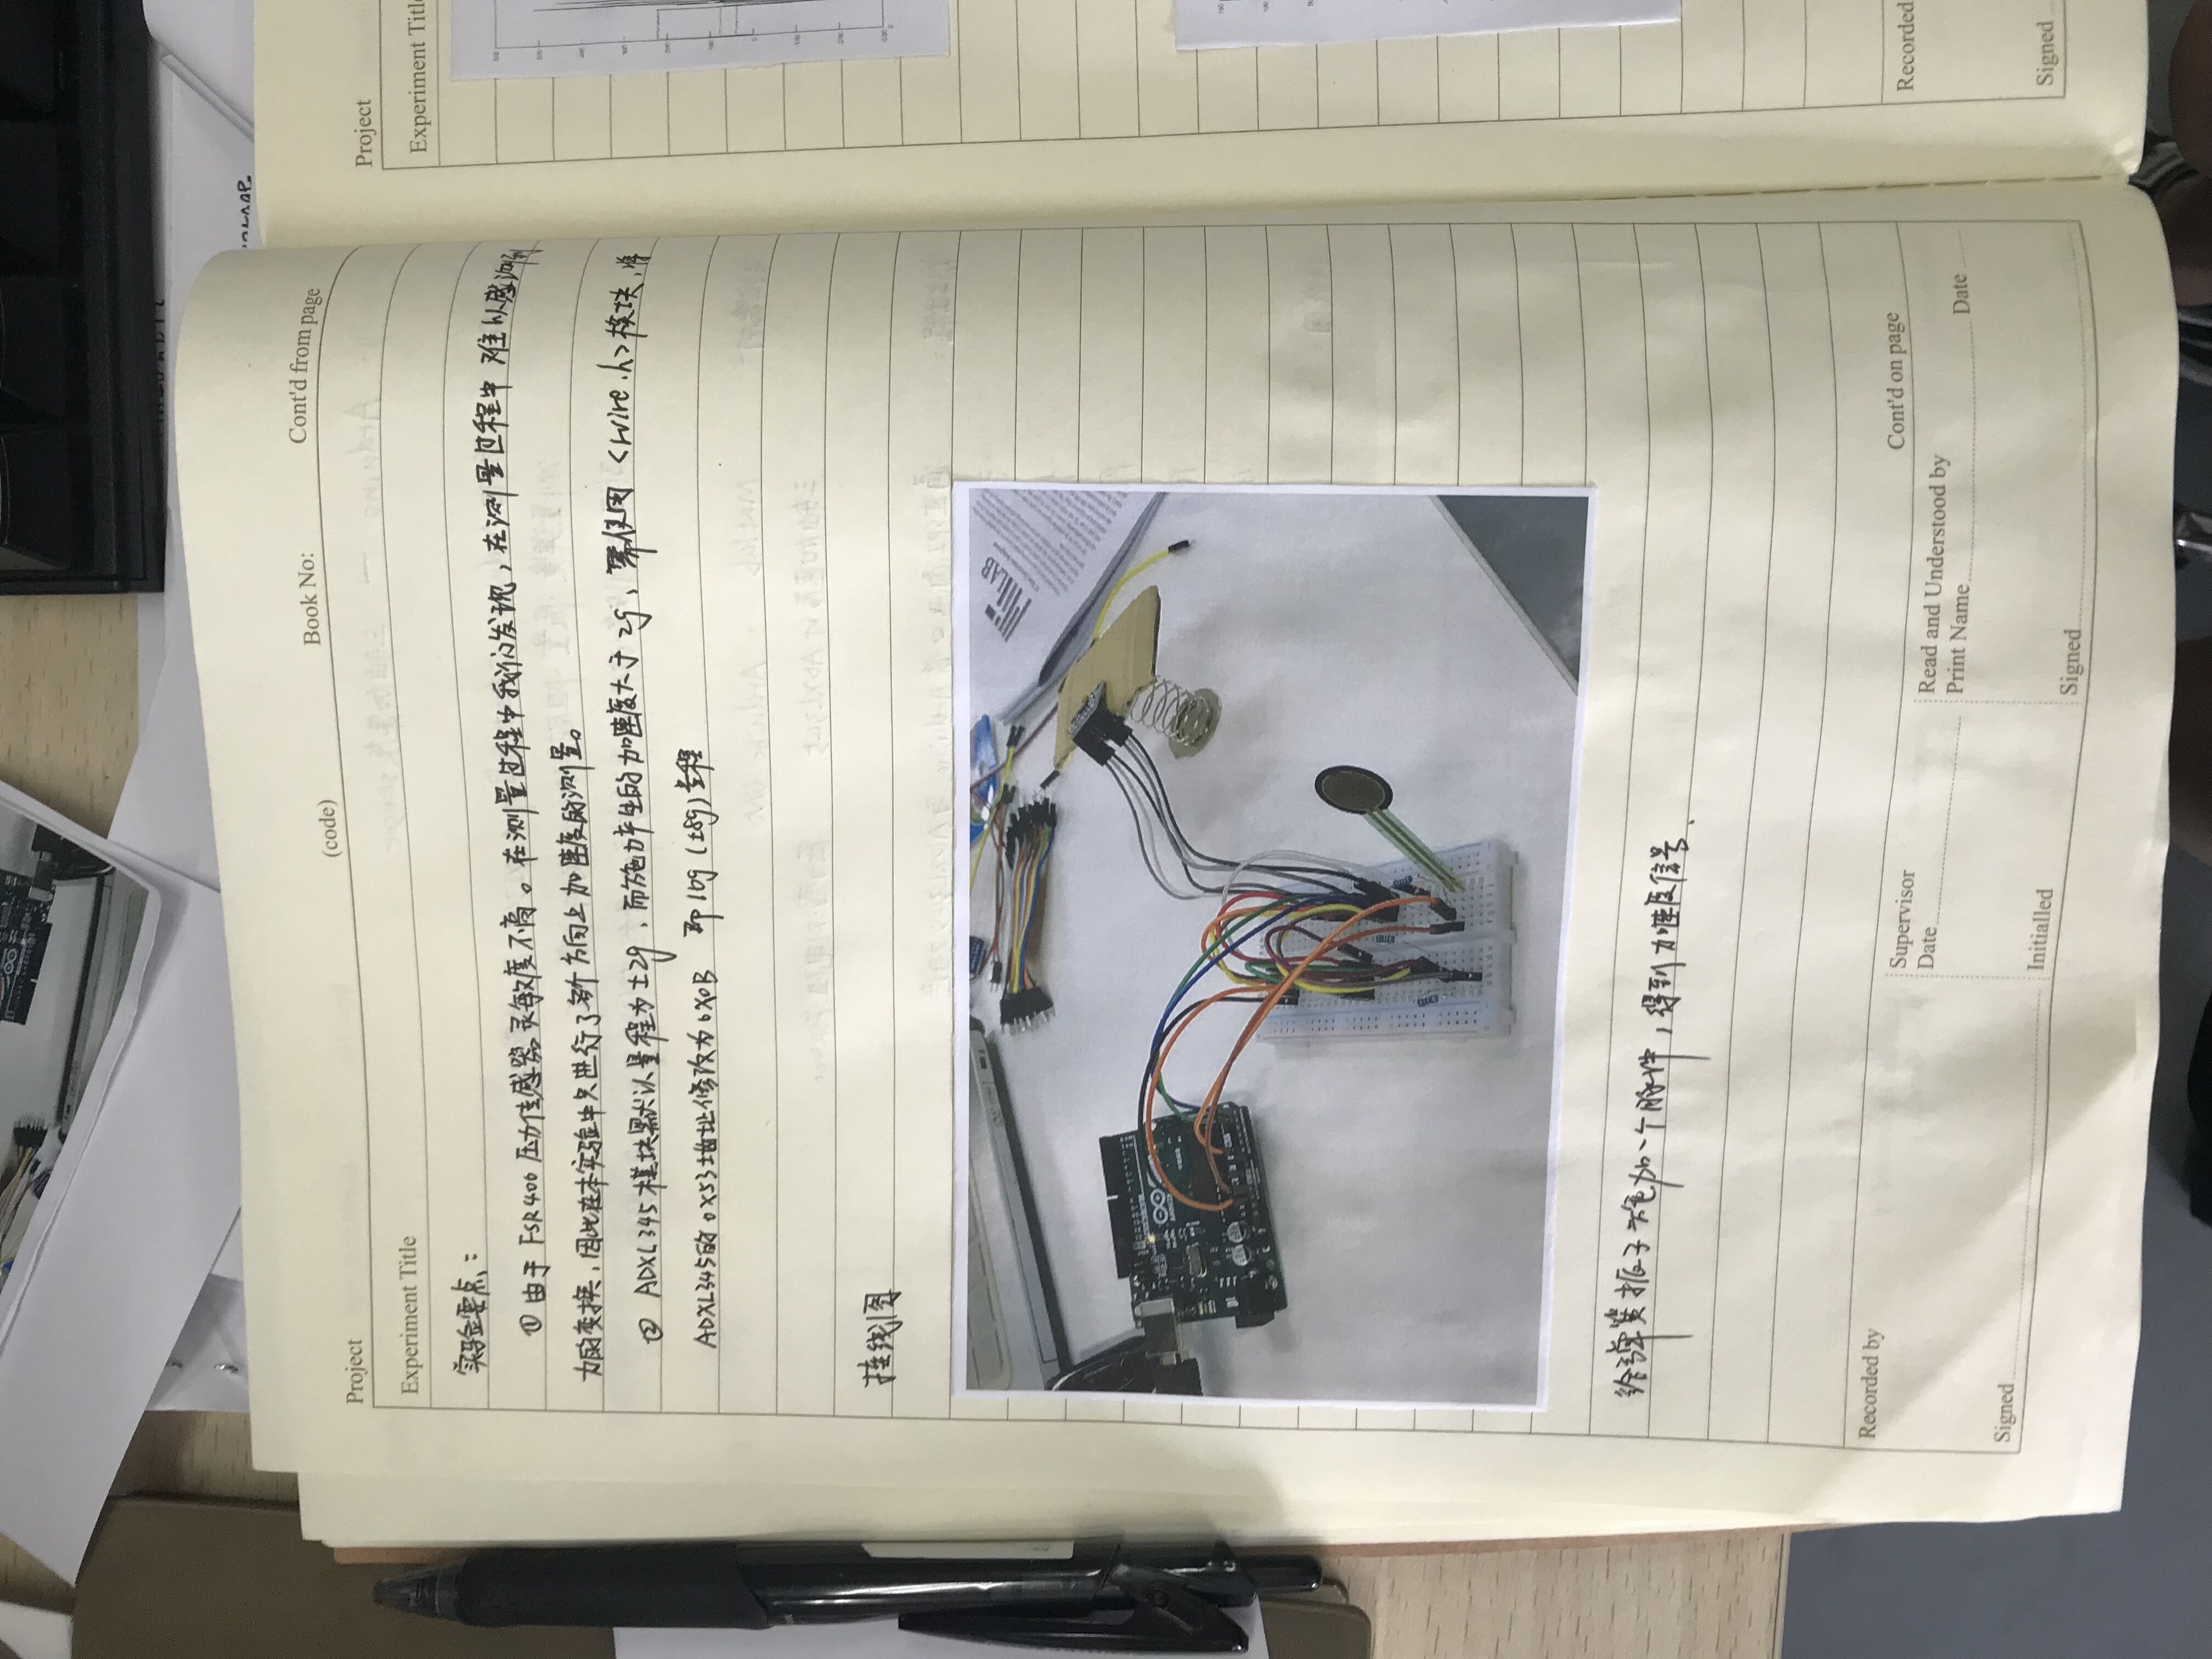 Project
(code)
Book No:
Cont'd from page
Experiment Title
实验要点：
① 由于 FSR400 压力传感器灵敏度不高。在测量过程中我们发现，在测量过程中 难以感测到
力的变换，因此在本实验中只进行了多个方向上加速度的测量。
② ADXL345 模块默认量程为 ±2g，而施力产生的加速度大于 2g，需使用 <wire.h> 模块，将
ADXL345的 0x53 地址修改为 0x0B 即 16g (±8g) 量程
接线图
MILAB
ARDUINO
给弹簧振子 加一个脉冲，得到加速度信号
Cont'd on page
Recorded by
Supervisor
Date
Read and Understood by
Print Name
Date
Signed
Initialled
Signed
Project
Experiment Title
Recorded
Signed